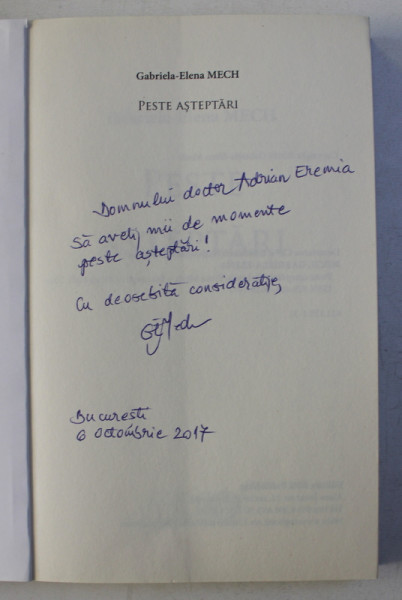 Gabriela-Elena MECH
PESTE AȘTEPTĂRI
Domnului doctor Adrian Eremia
Să aveți mii de momente
peste așteptări!
Cu deosebită considerație,
București
6 Octombrie 2017